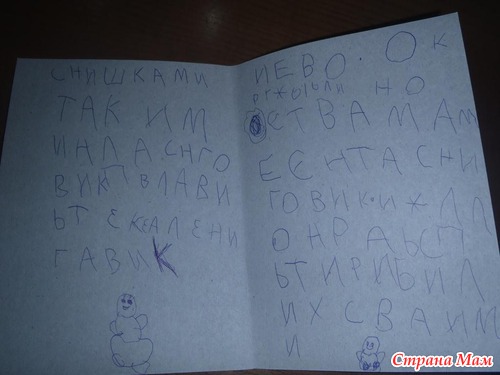 СНИШКАМИ
ТАК ИМ
ИНАПАСНГО
ВИК ПВЛАВИ
ЬТ ЕКЕАЛЕНИ
ГАВИК
ИЕВО. ОК
НО
СТВАМАМ
ЕЕНТАСНИ
ГОВИКИЖДЛ
ОНРАЬСП
ЬТИРИБИЛ
ИХСВАИМ
И
Страна Мам